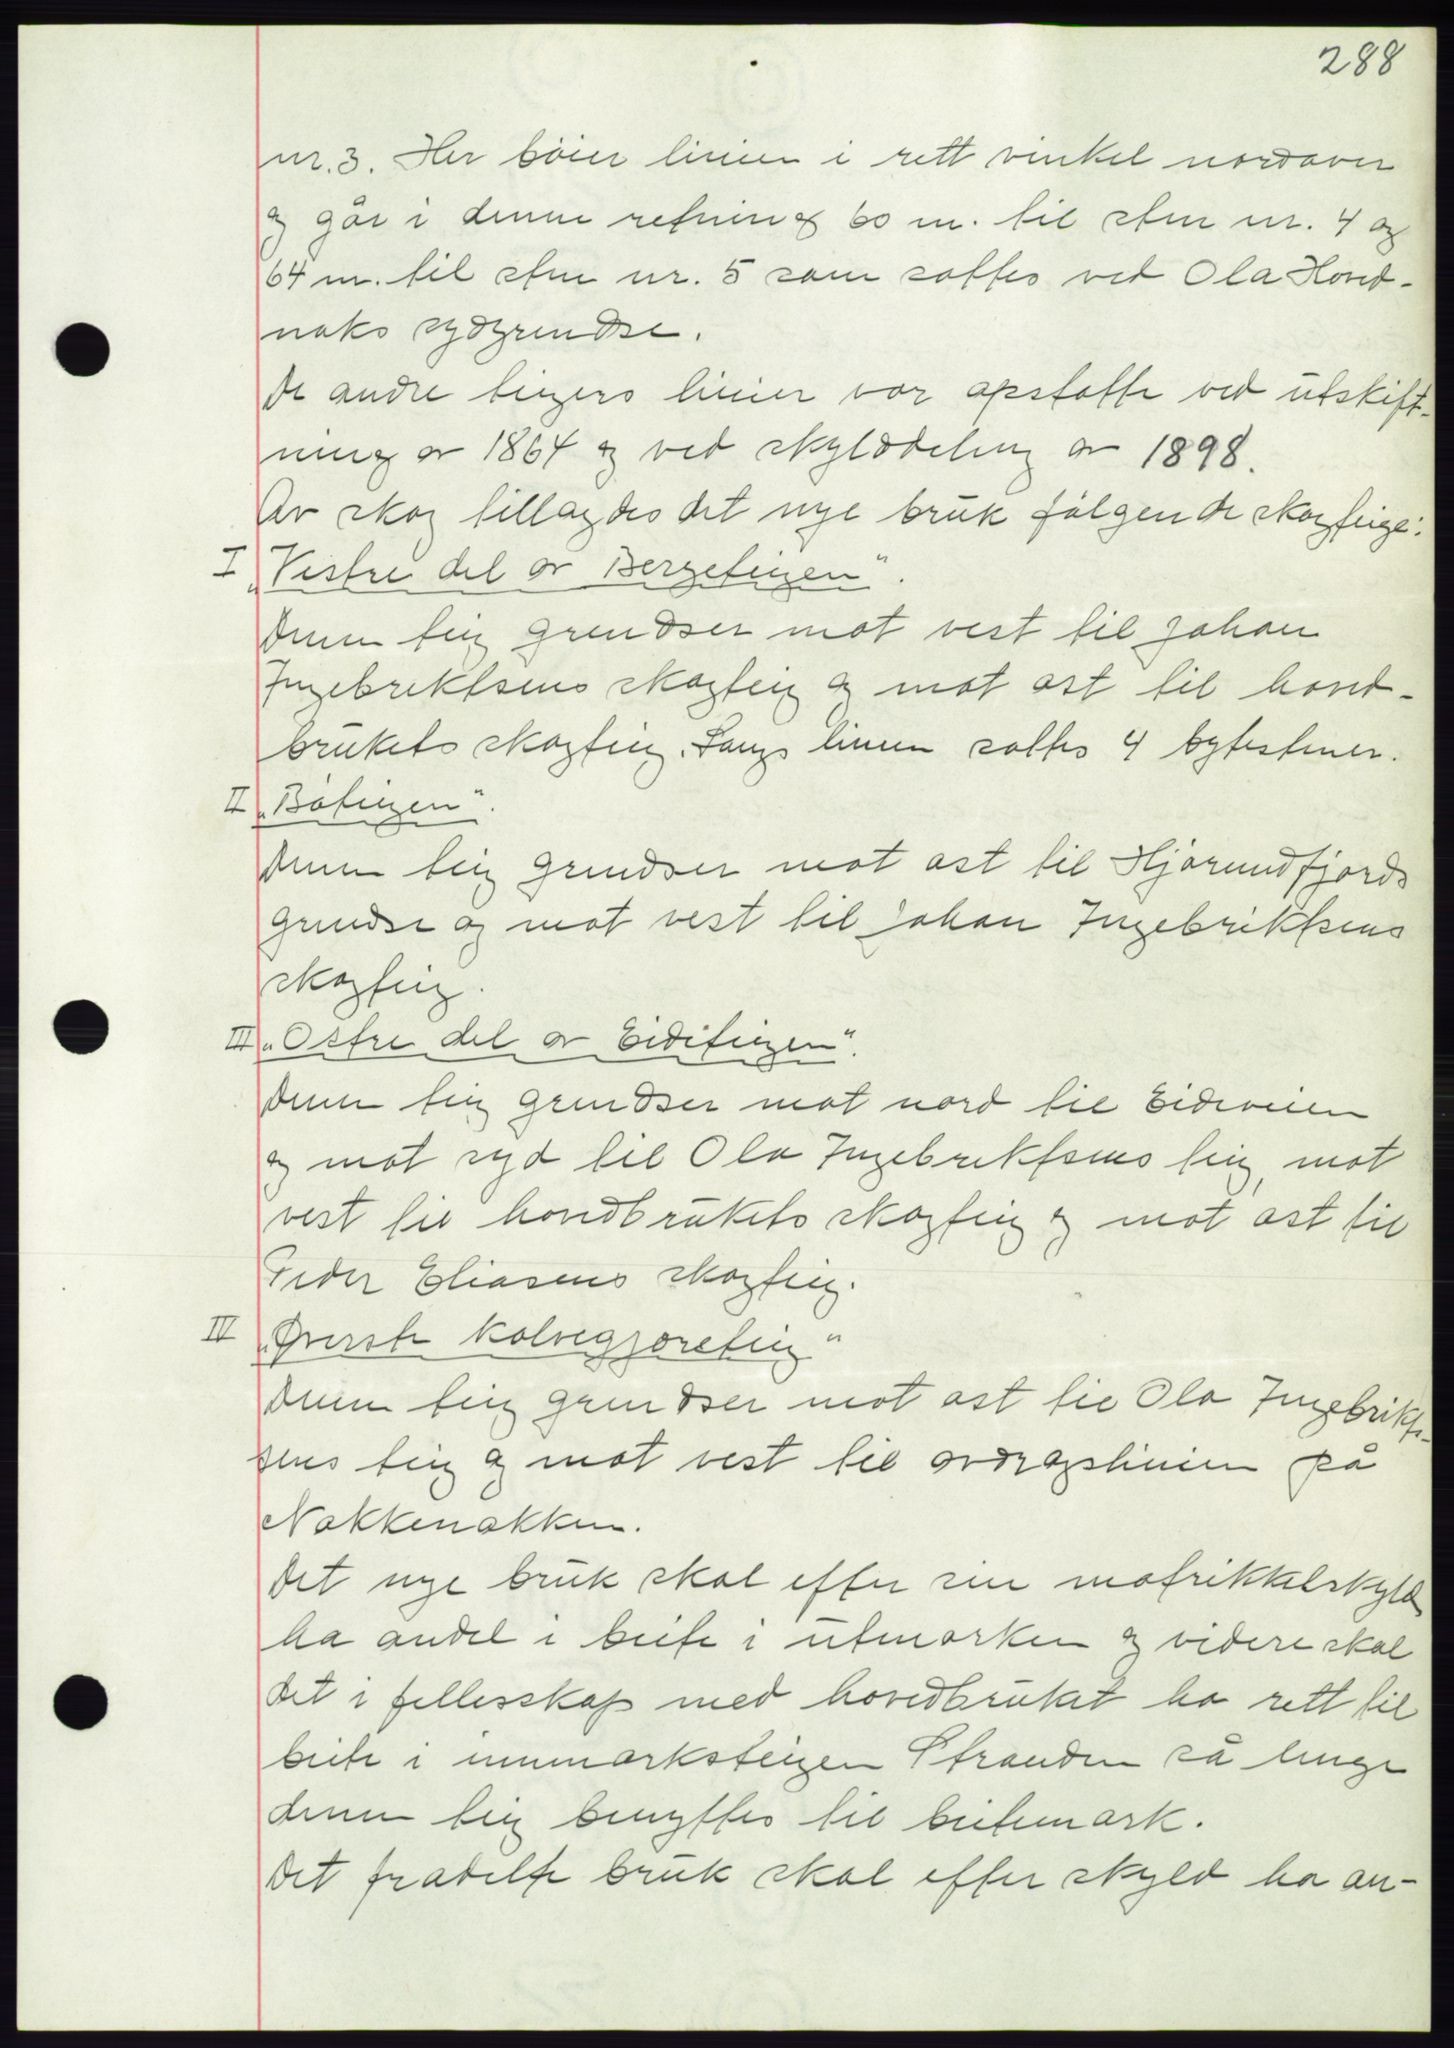 288
nr. 3. Her bøier linien i rett vinkel nordover
og går i denne retning 60 m. til sten nr. 4 og
64 m. til sten nr. 5 som sattes ved Ola Hovd-
naks sydgrendse.
De andre teigers linier var opstatte ved utskift-
ning av 1864 og ved skylddeling av 1898.
Av skog tillagdes det nye bruk følgende skogteige:
I „Vestre del av Bergeteigen“.
Denne teig grendser mot vest til Johan
Ingebrektsens skogteig og mot øst til hoved-
brukets skogteig. Langs linien sattes 4 bytestener.
II „Båteigen“.
Denne teig grendser mot øst til Hjørundfjords
grendse og mot vest til Johan Ingebriktsens
skogteig.
III „Østre del av Eideteigen“.
Denne teig grendser mot nord til Eideveien
og mot syd til Ola Ingebrektsens teig, mot
vest til hovedbrukets skogteig og mot øst til
Peder Eliasens skogteig.
IV „Øverste Kalvegjøreteig“
Denne teig grendser mot øst til Ola Ingebrikt-
sens teig og mot vest til avdragslinien på
Nakkenakken.
Det nye bruk skal efter sin matrikkelskyld
ha andel i beite i utmarken og videre skal
det i fellesskap med hovedbruket ha rett til
beite i innmarksteigen Stranden så lenge
denne teig benyttes til beitemark.
Det fradelte bruk skal efter skyld ha an-